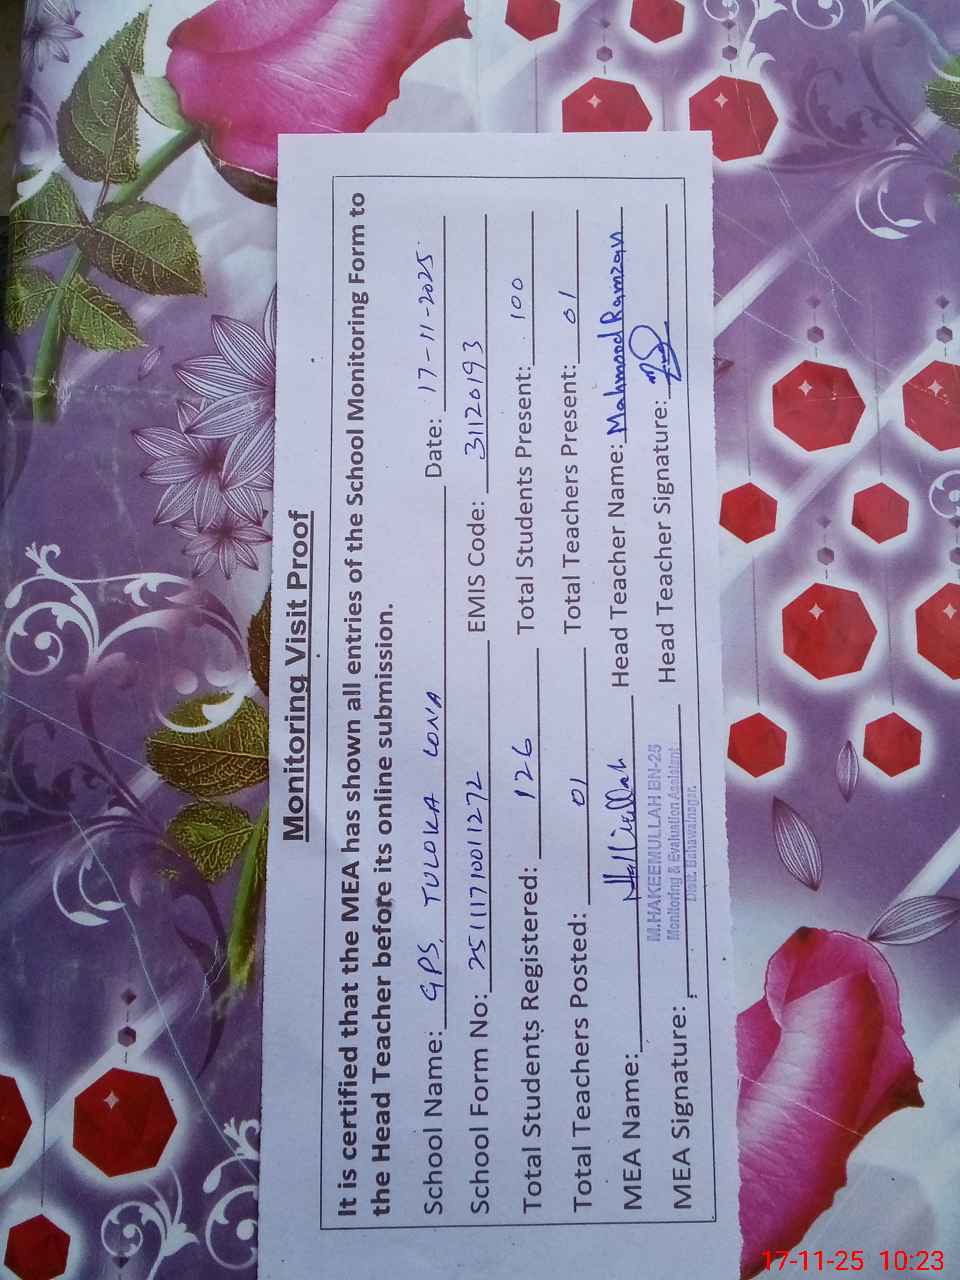 Monitoring Visit Proof
It is certified that the MEA has shown all entries of the School Monitoring Form to
the Head Teacher before its online submission.
School Name: GPS TULOKA LONA Date: 17-11-2025
School Form No: 25111710011272 EMIS Code: 31120193
Total Students Registered: 126 Total Students Present: 100
Total Teachers Posted: 01 Total Teachers Present: 01
MEA Name: Head Teacher Name: Mahmood Ramzan
M.HAKEEMULLAH BN-25
MEA Signature: Head Teacher Signature:
Monitoring & Evaluation Assistant
Distt. Bahawalnagar.
17-11-25 10:23